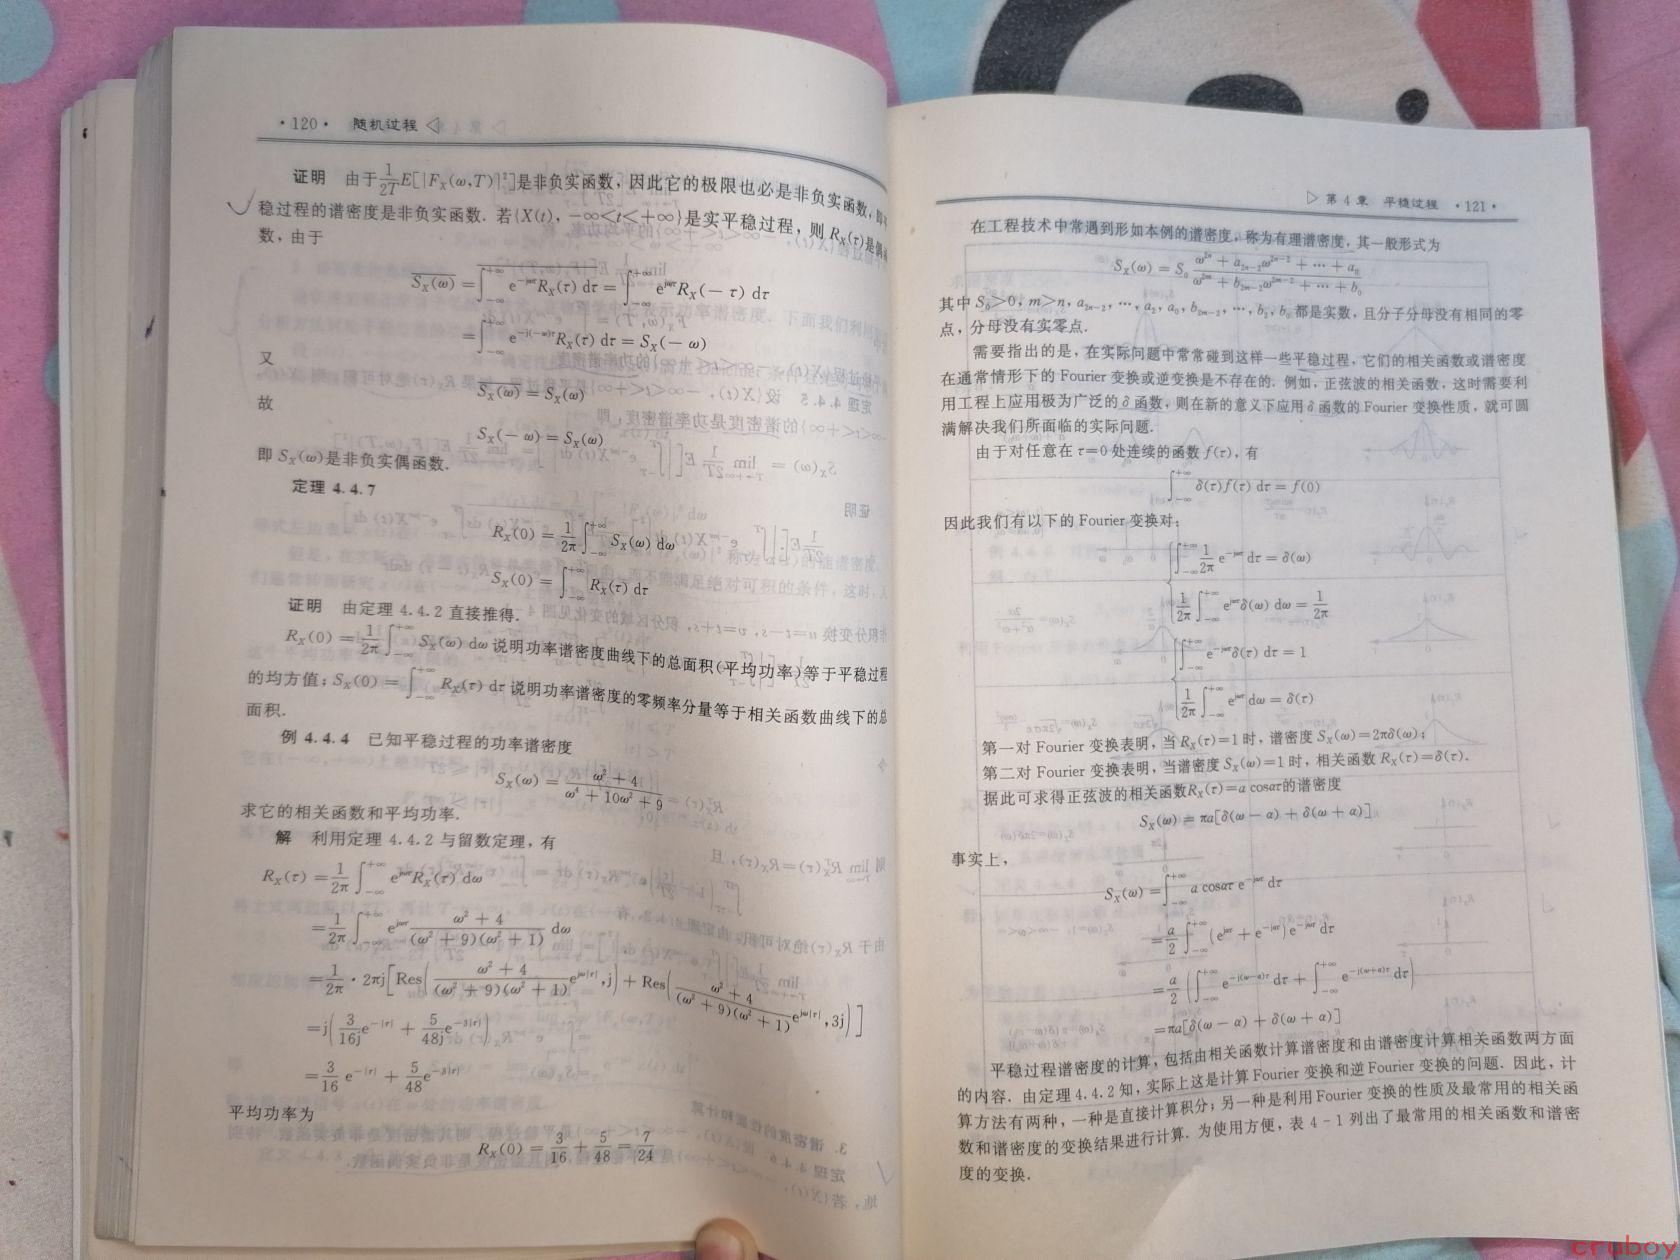 ·120· 随机过程 ◁
证明 由于\frac{1}{2T}E[|F_X(ω,T)|²]是非负实函数,因此它的极限也必是非负实函数,
稳过程的谱密度是非负实函数.若{X(t),-∞<t<+∞}是实平稳过程,则R_X(τ)是偶
数,由于
\overline{S_X(ω)}=\overline{∫_{-∞}^{+∞}e^{-jωτ}R_X(τ)dτ}=∫_{-∞}^{+∞}e^{jωτ}R_X(-τ)dτ
=∫_{-∞}^{+∞}e^{-j(-ω)τ}R_X(τ)dτ=S_X(-ω)
又
\overline{S_X(ω)}=S_X(ω)
故
S_X(-ω)=S_X(ω)
即S_X(ω)是非负实偶函数.
定理4.4.7
R_X(0)=\frac{1}{2π}∫_{-∞}^{+∞}S_X(ω)dω
S_X(0)=∫_{-∞}^{+∞}R_X(τ)dτ
证明 由定理4.4.2直接推得.
R_X(0)=\frac{1}{2π}∫_{-∞}^{+∞}S_X(ω)dω说明功率谱密度曲线下的总面积(平均功率)等于平稳过程
的均方值;S_X(0)=∫_{-∞}^{+∞}R_X(τ)dτ说明功率谱密度的零频率分量等于相关函数曲线下的总
面积.
例4.4.4 已知平稳过程的功率谱密度
S_X(ω)=\frac{ω²+4}{ω⁴+10ω²+9}
求它的相关函数和平均功率.
解 利用定理4.4.2与留数定理,有
R_X(τ)=\frac{1}{2π}∫_{-∞}^{+∞}e^{jωτ}R_X(τ)dω
=\frac{1}{2π}∫_{-∞}^{+∞}e^{jωτ}\frac{ω²+4}{(ω²+9)(ω²+1)}dω
=\frac{1}{2π}·2πj[Res(\frac{ω²+4}{(ω²+9)(ω²+1)}e^{jω|τ|},j)+Res(\frac{ω²+4}{(ω²+9)(ω²+1)}e^{jω|τ|},3j)]
=j(\frac{3}{16j}e^{-|τ|}+\frac{5}{48j}e^{-3|τ|})
=\frac{3}{16}e^{-|τ|}+\frac{5}{48}e^{-3|τ|}
平均功率为
R_X(0)=\frac{3}{16}+\frac{5}{48}=\frac{7}{24}
▷ 第4章 平稳过程 ·121·
在工程技术中常遇到形如本例的谱密度,称为有理谱密度,其一般形式为
S_X(ω)=S_0\frac{ω^{2n}+a_{2n-2}ω^{2n-2}+⋯+a_0}{ω^{2m}+b_{2m-2}ω^{2m-2}+⋯+b_0}
其中S_0>0,m>n,a_{2n-2},⋯,a_2,a_0,b_{2m-2},⋯,b_2,b_0都是实数,且分子分母没有相同的零
点,分母没有实零点.
需要指出的是,在实际问题中常常碰到这样一些平稳过程,它们的相关函数或谱密度
在通常情形下的Fourier变换或逆变换是不存在的.例如,正弦波的相关函数,这时需要利
用工程上应用极为广泛的δ函数,则在新的意义下应用δ函数的Fourier变换性质,就可圆
满解决我们所面临的实际问题.
由于对任意在τ=0处连续的函数f(τ),有
∫_{-∞}^{+∞}δ(τ)f(τ)dτ=f(0)
因此我们有以下的Fourier变换对:
∫_{-∞}^{+∞}\frac{1}{2π}e^{-jωτ}dτ=δ(ω)
\frac{1}{2π}∫_{-∞}^{+∞}e^{jωτ}δ(ω)dω=\frac{1}{2π}
∫_{-∞}^{+∞}e^{-jωτ}δ(τ)dτ=1
\frac{1}{2π}∫_{-∞}^{+∞}e^{jωτ}dω=δ(τ)
第一对Fourier变换表明,当R_X(τ)=1时,谱密度S_X(ω)=2πδ(ω);
第二对Fourier变换表明,当谱密度S_X(ω)=1时,相关函数R_X(τ)=δ(τ).
据此可求得正弦波的相关函数R_X(τ)=a cosατ的谱密度
S_X(ω)=πa[δ(ω-α)+δ(ω+α)]
事实上,
S_X(ω)=∫_{-∞}^{+∞}a cosατ e^{-jωτ}dτ
=\frac{a}{2}∫_{-∞}^{+∞}(e^{jατ}+e^{-jατ})e^{-jωτ}dτ
=\frac{a}{2}(∫_{-∞}^{+∞}e^{-j(ω-α)τ}dτ+∫_{-∞}^{+∞}e^{-j(ω+α)τ}dτ)
=πa[δ(ω-α)+δ(ω+α)]
平稳过程谱密度的计算,包括由相关函数计算谱密度和由谱密度计算相关函数两方面
的内容.由定理4.4.2知,实际上这是计算Fourier变换和逆Fourier变换的问题.因此,计
算方法有两种,一种是直接计算积分;另一种是利用Fourier变换的性质及最常用的相关函
数和谱密度的变换结果进行计算.为使用方便,表4-1列出了最常用的相关函数和谱密
度的变换.
cruboy